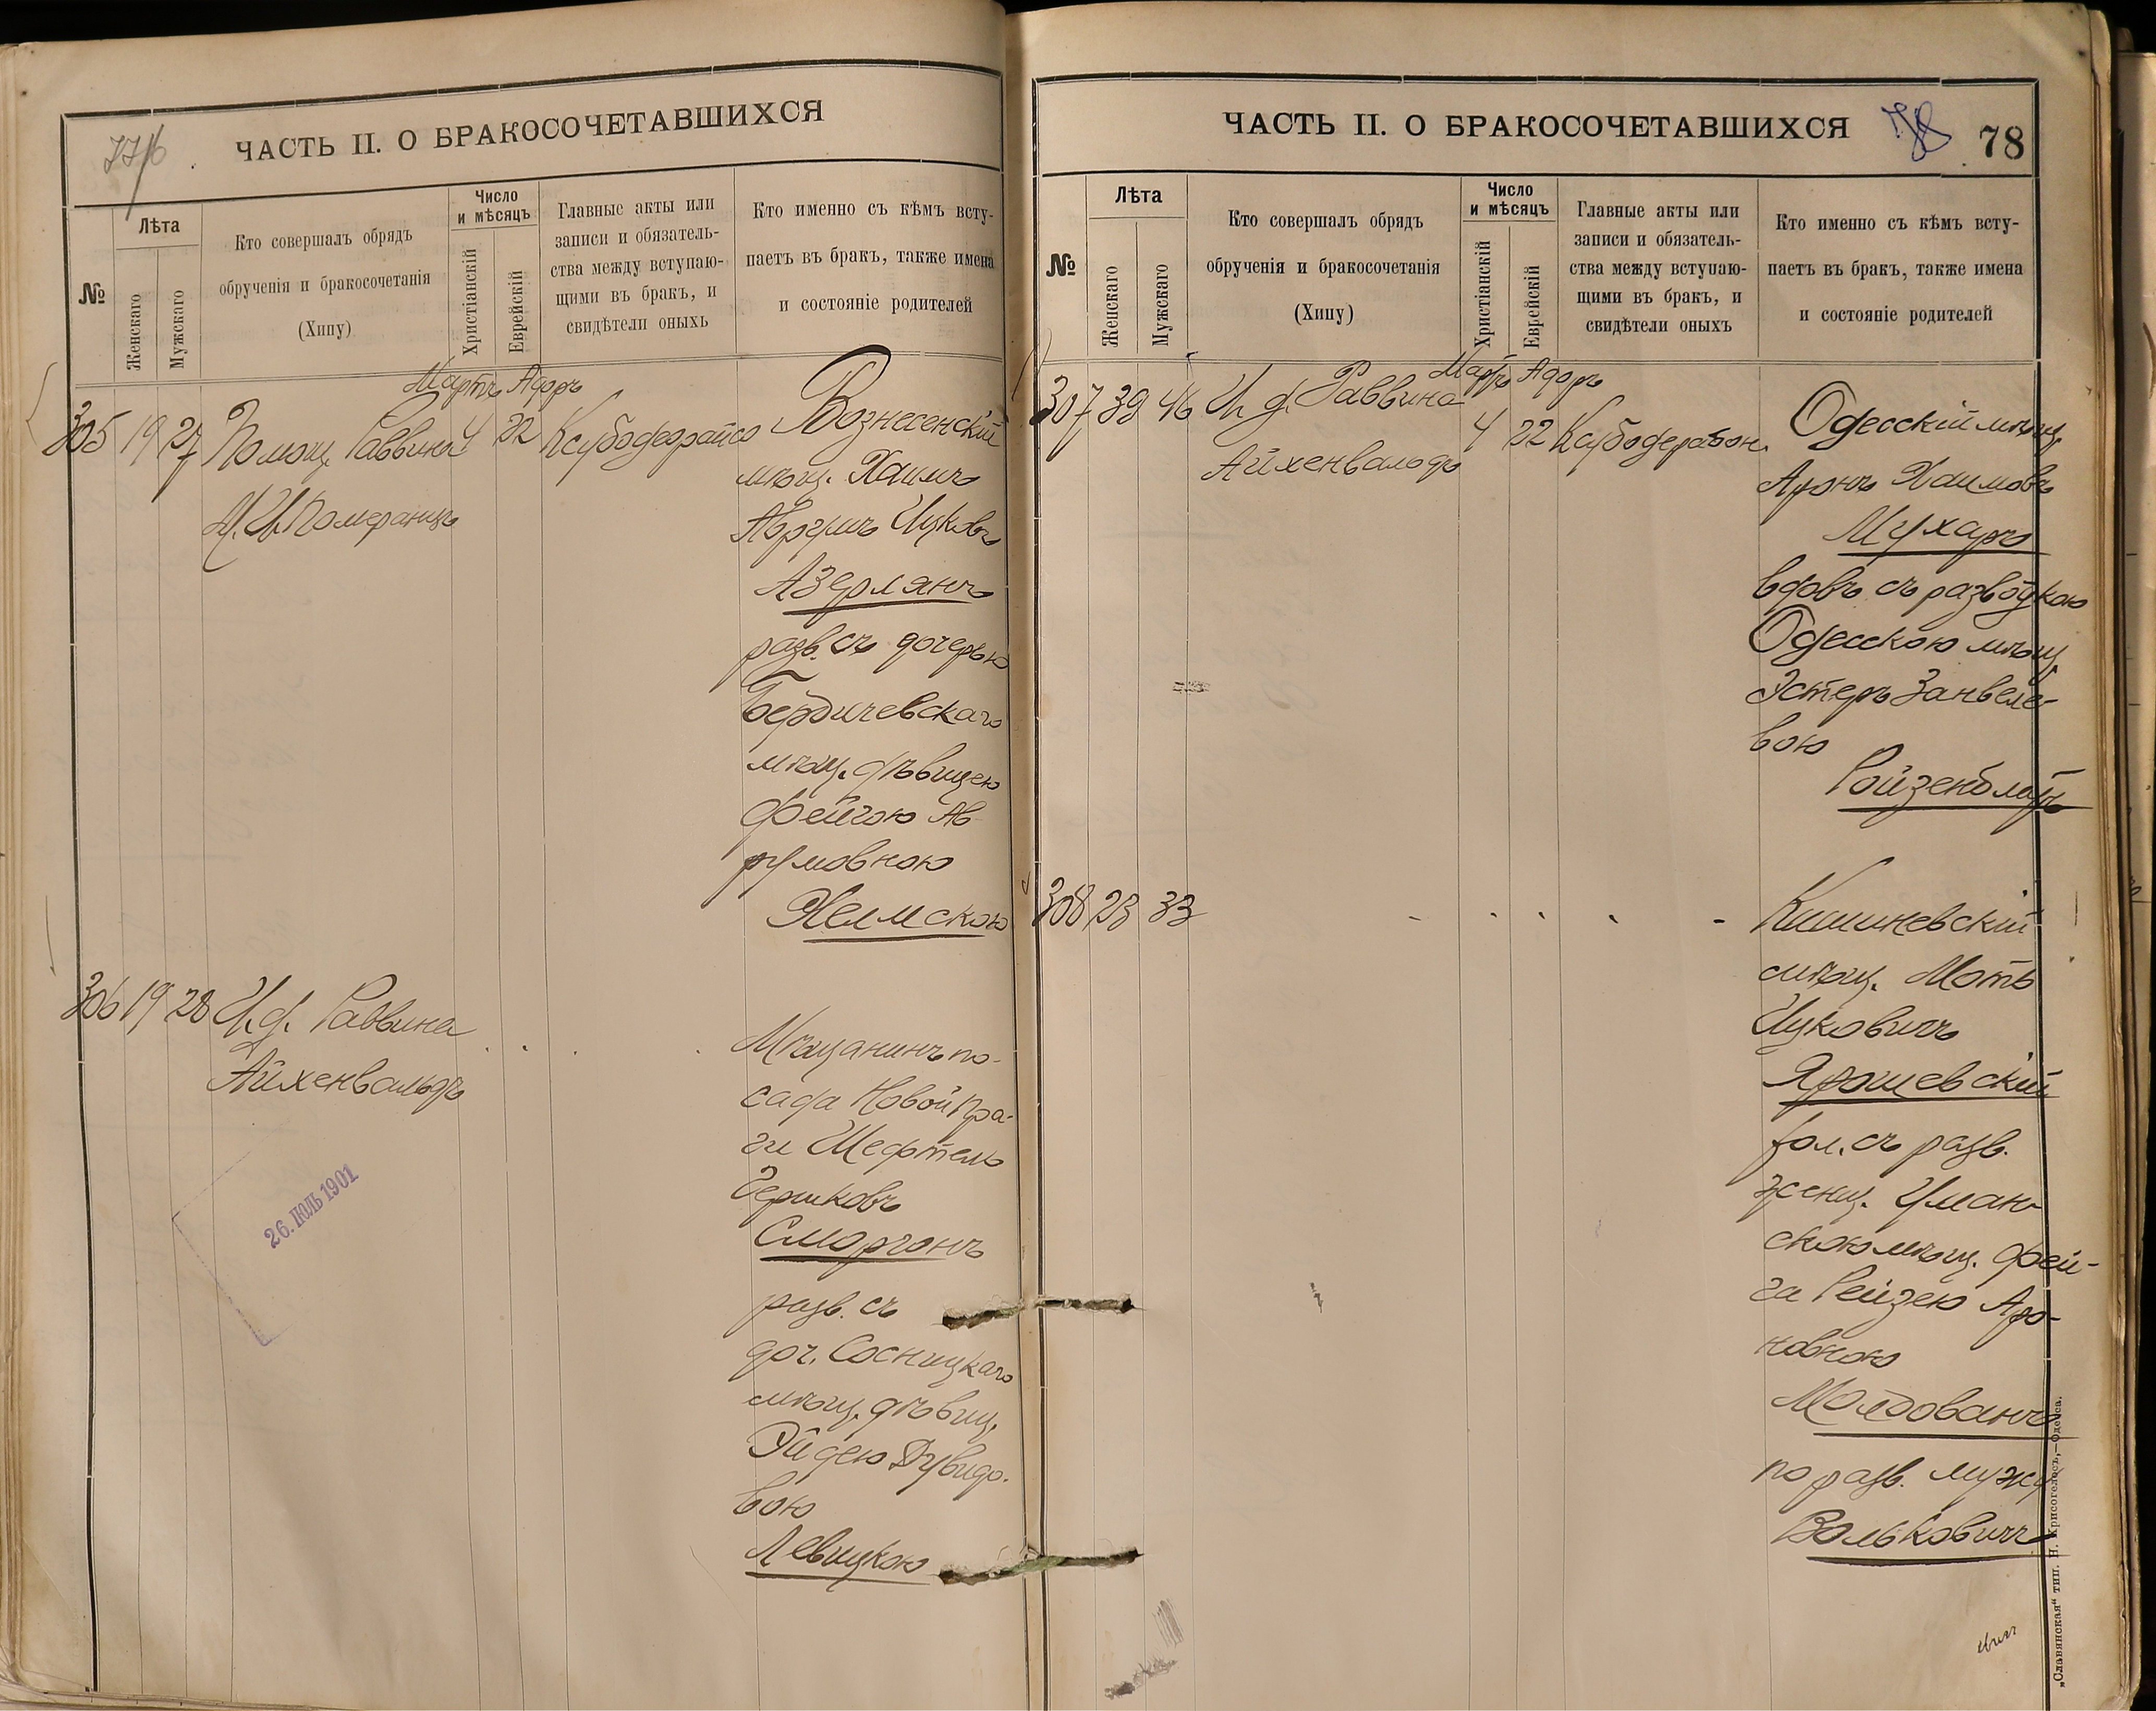 ЧАСТЬ II. О БРАКОСОЧЕТАВШИХСЯ
№
Лѣта
Женскаго
Мужскаго
Кто совершалъ обрядъ
обрученія и бракосочетанія
(Хипу)
Число
и мѣсяцъ
Христіанскій
Еврейскій
Главные акты или
записи и обязатель-
ства между вступаю-
щими въ бракъ, и
свидѣтели оныхъ
Кто именно съ кѣмъ всту-
паетъ въ бракъ, также имена
и состояніе родителей
Мартъ Адаръ
305 19 27 Помощ. Раввина 4 22
М. И. Померанцъ
Вознесенскій
мѣщ. Хаимъ
Аврумъ Ицковъ
Азерлянъ
разв. съ дочерью
Бердичевскаго
мѣщ. дѣвицею
Фейгою Ав-
румовною
Хелмскою
306 19 28 И. д. Раввина
Айхенвальдъ
Мѣщанинъ по-
сада Новой Пра-
ги Шефтель
Гершковъ
Сморгонъ
разв. съ
доч. Сосницкаго
мѣщ. дѣвиц.
Эйдею Дувидо-
вою
Левицкою
26. ІЮЛЬ 1901
ЧАСТЬ II. О БРАКОСОЧЕТАВШИХСЯ
78
78
№
Лѣта
Женскаго
Мужскаго
Кто совершалъ обрядъ
обрученія и бракосочетанія
(Хипу)
Число
и мѣсяцъ
Христіанскій
Еврейскій
Главные акты или
записи и обязатель-
ства между вступаю-
щими въ бракъ, и
свидѣтели оныхъ
Кто именно съ кѣмъ всту-
паетъ въ бракъ, также имена
и состояніе родителей
Мартъ Адаръ
307 39 46 И. д. Раввина 4 22
Айхенвальдъ
Одесскій мѣщ.
Аронъ Хаимовъ
Мухаръ
вдовъ съ разводкою
Одесскою мѣщ.
Эстеръ Занвеле-
вою
Ройзенблатъ
308 23 33
Кишиневскій
мѣщ. Моть
Ицковичъ
Ярошевскій
хол. съ разв.
женщ. Уман-
скою мѣщ. Фей-
га Рейзею Аро-
новною
Молдованъ
по разв. мужу
Вольковичъ
„Славянская“ тип. Н. Хрисогелосъ,—Одесса.